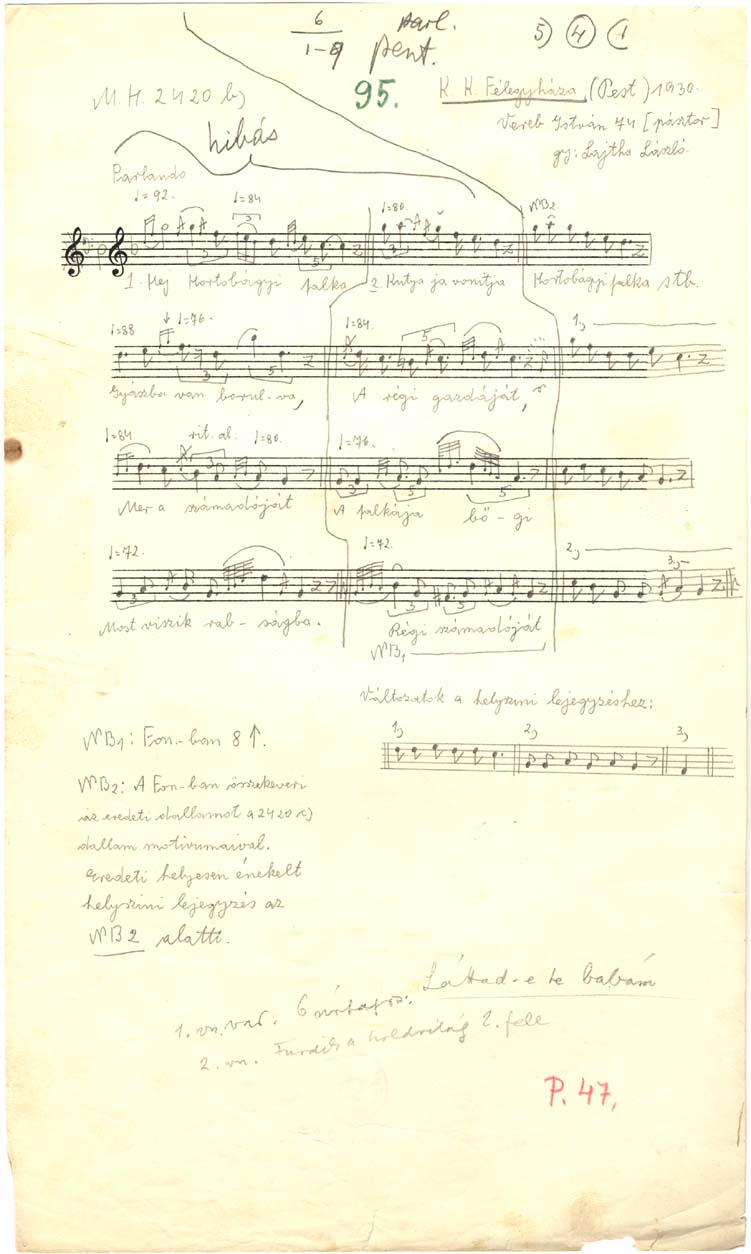 6 parl.
1-9 pent.
5) 4 1
M. H. 2420 b)
95.
K. K. Félegyháza (Pest) 1930.
Vereb István 74 [pásztor]
gy: Lajtha László.
hibás
Parlando
♩=92. ♩=84 ♩=80. NB2.
3 5 5
1. Hej Hortobágyi falka 2. Kutya ja vonítja Hortobágyi falka stb.
♩=88 ♩=76. ♩=84. 1,
3 5 5
Gyászba van borul-va, A régi gazdáját,
♩=84 rit. al. ♩=80. ♩=76.
3 3 5 5
Mer a számadóját A falkája bő-gi
♩=72. ♩=72. 2, 3,
3 3 5
Most viszik rab-ságba. Régi számadóját
NB1
Változatok a helyszini lejegyzéshez:
1, 2, 3,
NB1: Fon.-ban 8 ↑.
NB2: A Fon-ban összekeveri
az eredeti dallamot a 2420 c)
dallam motivumaival.
Eredeti helyesen énekelt
helyszini lejegyzés az
NB2 alatti.
Láttad-e te babám
1. vn. var. 6
2. vn. Fürdik a holdvilág 2. fele
P. 47.